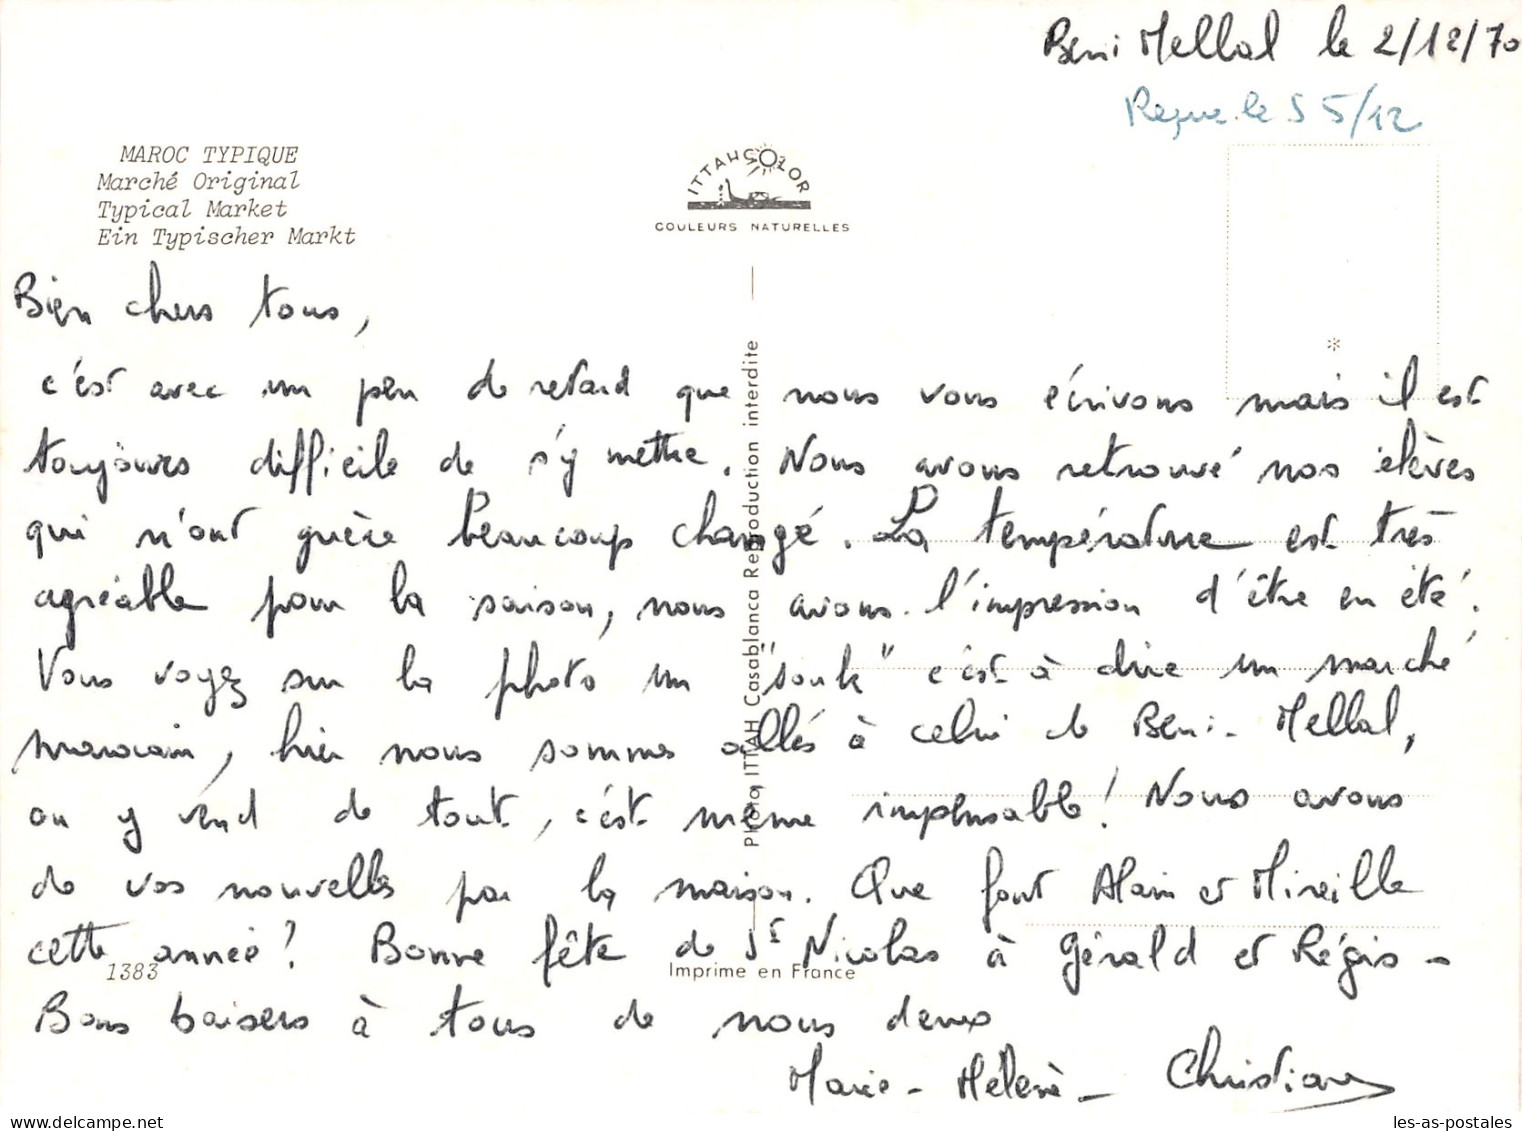 Beni Mellal le 2/12/70
Reçue le S 5/12
MAROC TYPIQUE
Marché Original
Typical Market
Ein Typischer Markt
ITTAHCOLOR
COULEURS NATURELLES
Bien chers tous,
c'est avec un peu de retard que nous vous écrivons mais il est
toujours difficile de s'y mettre. Nous avons retrouvé nos élèves
qui n'ont guère beaucoup changé. La température est très
agréable pour la saison, nous avons l'impression d'être en été.
Vous voyez sur la photo un "souk" c'est à dire un marché
marocain, hier nous sommes allés à celui de Beni-Mellal,
on y vend de tout, c'est même impensable! Nous avons
de vos nouvelles par la maison. Que font Alain et Mireille
cette année? Bonne fête de St Nicolas à Gérald et Régis -
Bons baisers à tous de nous deux
Marie-Hélène - Christian
Photo ITTAH Casablanca Reproduction interdite
1383
Imprime en France
les-as-postales